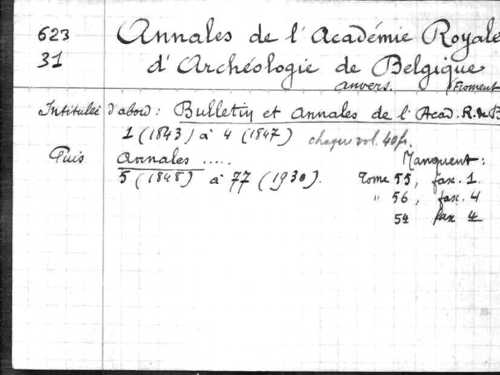 623 Annales de l'Académie Royale
31 d'Archéologie de Belgique
Anvers. (Froment
Intitulée d'abord : Bulletin et Annales de l'Acad. R. de B
1 (1843) à 4 (1847) chaque vol. 40f.
Puis Annales ..... Manquent :
5 (1848) à 77 (1930). Tome 55, fax. 1.
" 56, fax. 4
52 fax 4